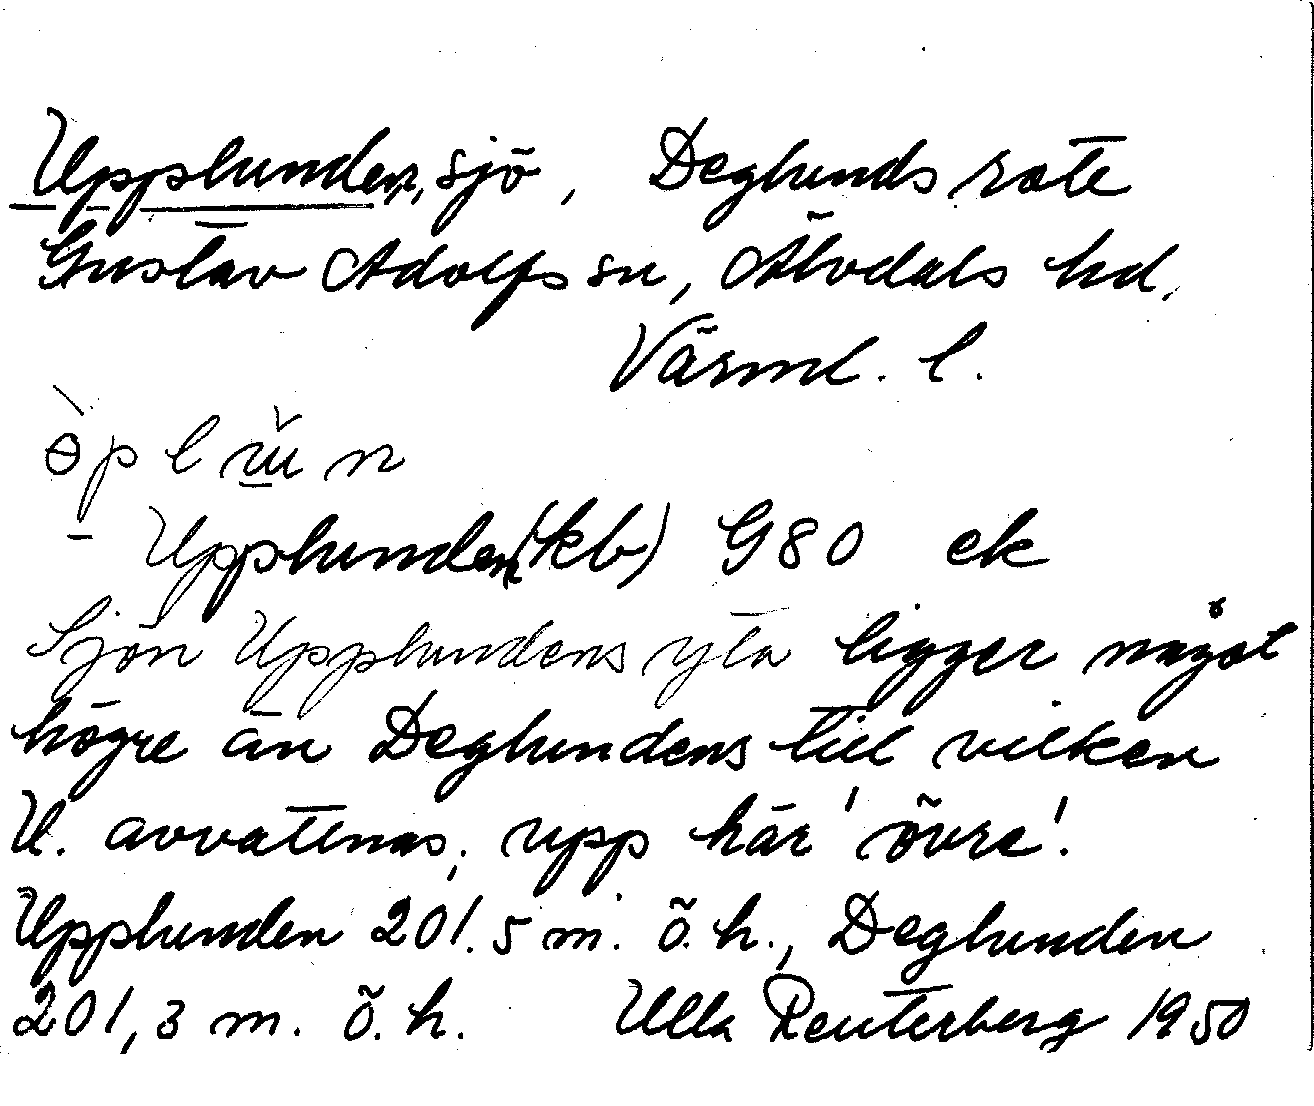 Upplunden, sjö, Deglunds rote
Gustav Adolfs sn, Älvdals hd,
Värml. l.
Upplunden (kb) G80 ek
Sjön Upplundens yta ligger något
högre än Deglundens till vilken
U. avvattnas; upp här 'övre'.
Upplunden 201.5 m. ö. h., Deglunden
201,3 m. ö. h. Ulla Reuterberg 1950